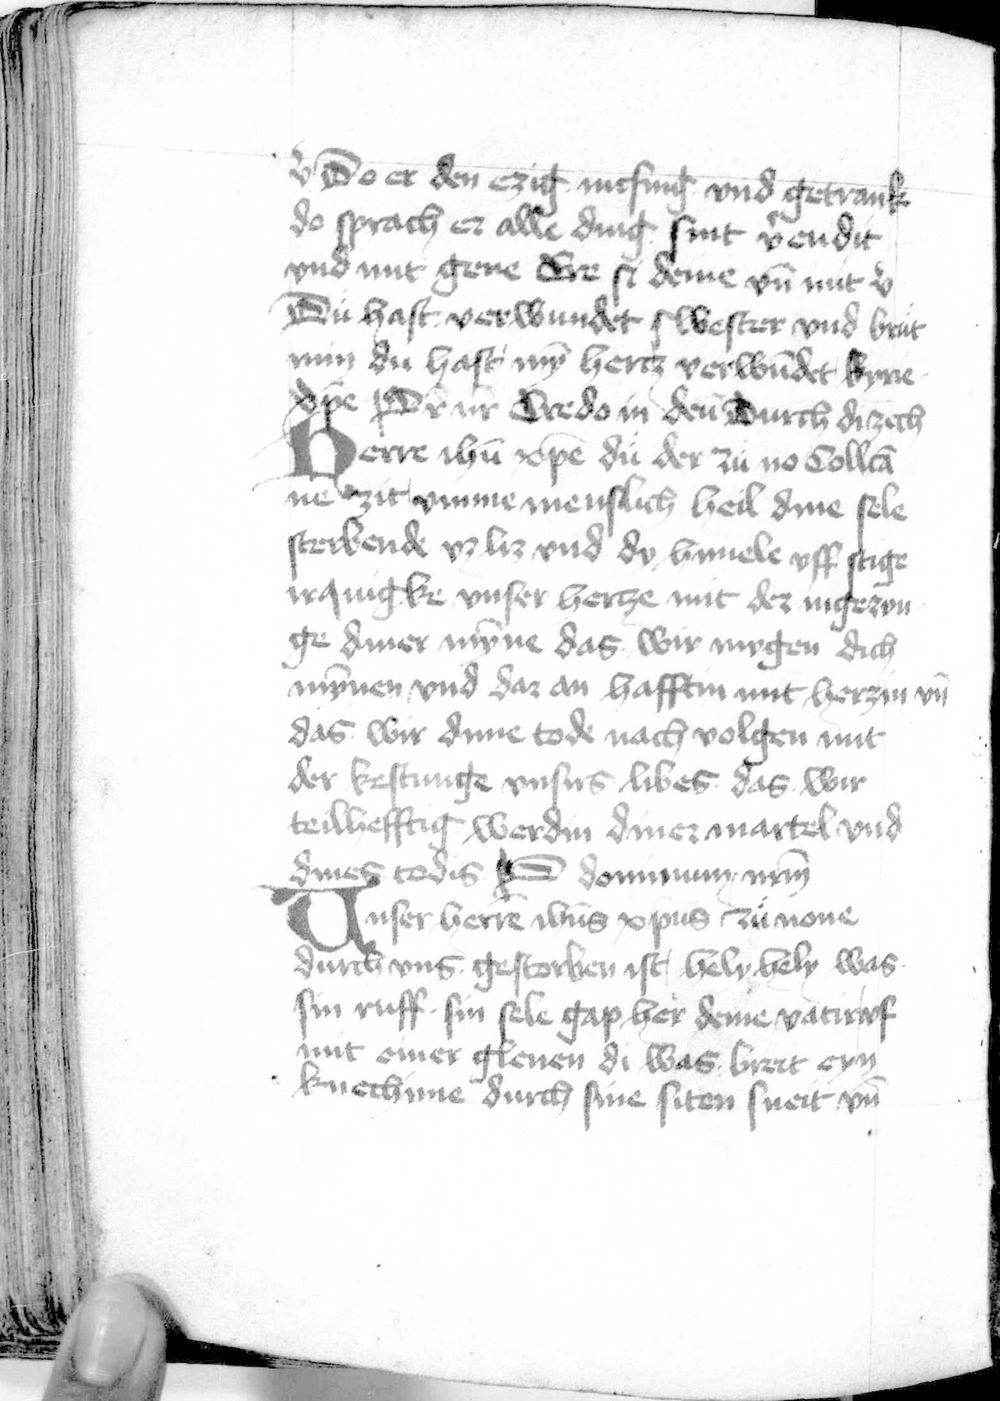 v Do er den ezig intfing vnd getrank
do sprach er alle ding sint v̾endit
vnd mit geue Ere si deme vn̄ mit v̾
Du hast verwundet swester vnd brut
min du hast my̅ hertz verwūdet kyrie
xp̄e Pr̄ nr̄ Credo in deū Durch di zech
Herre ihū xp̄e dü der zü no Collcā
ne zit vmme menslich heil dine sele
sterbende vz liz vnd dy himele vff stige
irquigke vnser hertze mit der ingezou
ge diner my̅ne das wir mogen dich
my̅nen vnd dar an hafftin mit herzin vn̄
das wir dime tode nach volgen mit
der kestunge vnsirs libes das wir
teilhefftig werdin diner martel vnd
dines todis P dominum nr̄m
Unser herre ihūs xp̄us zü none
durch vns gestorben ist hely hely was
sin ruff sin sele gap her deme vatir vf
mit einer gleuen di was breit eyn
knecht ime durch sine siten sneit vn̄